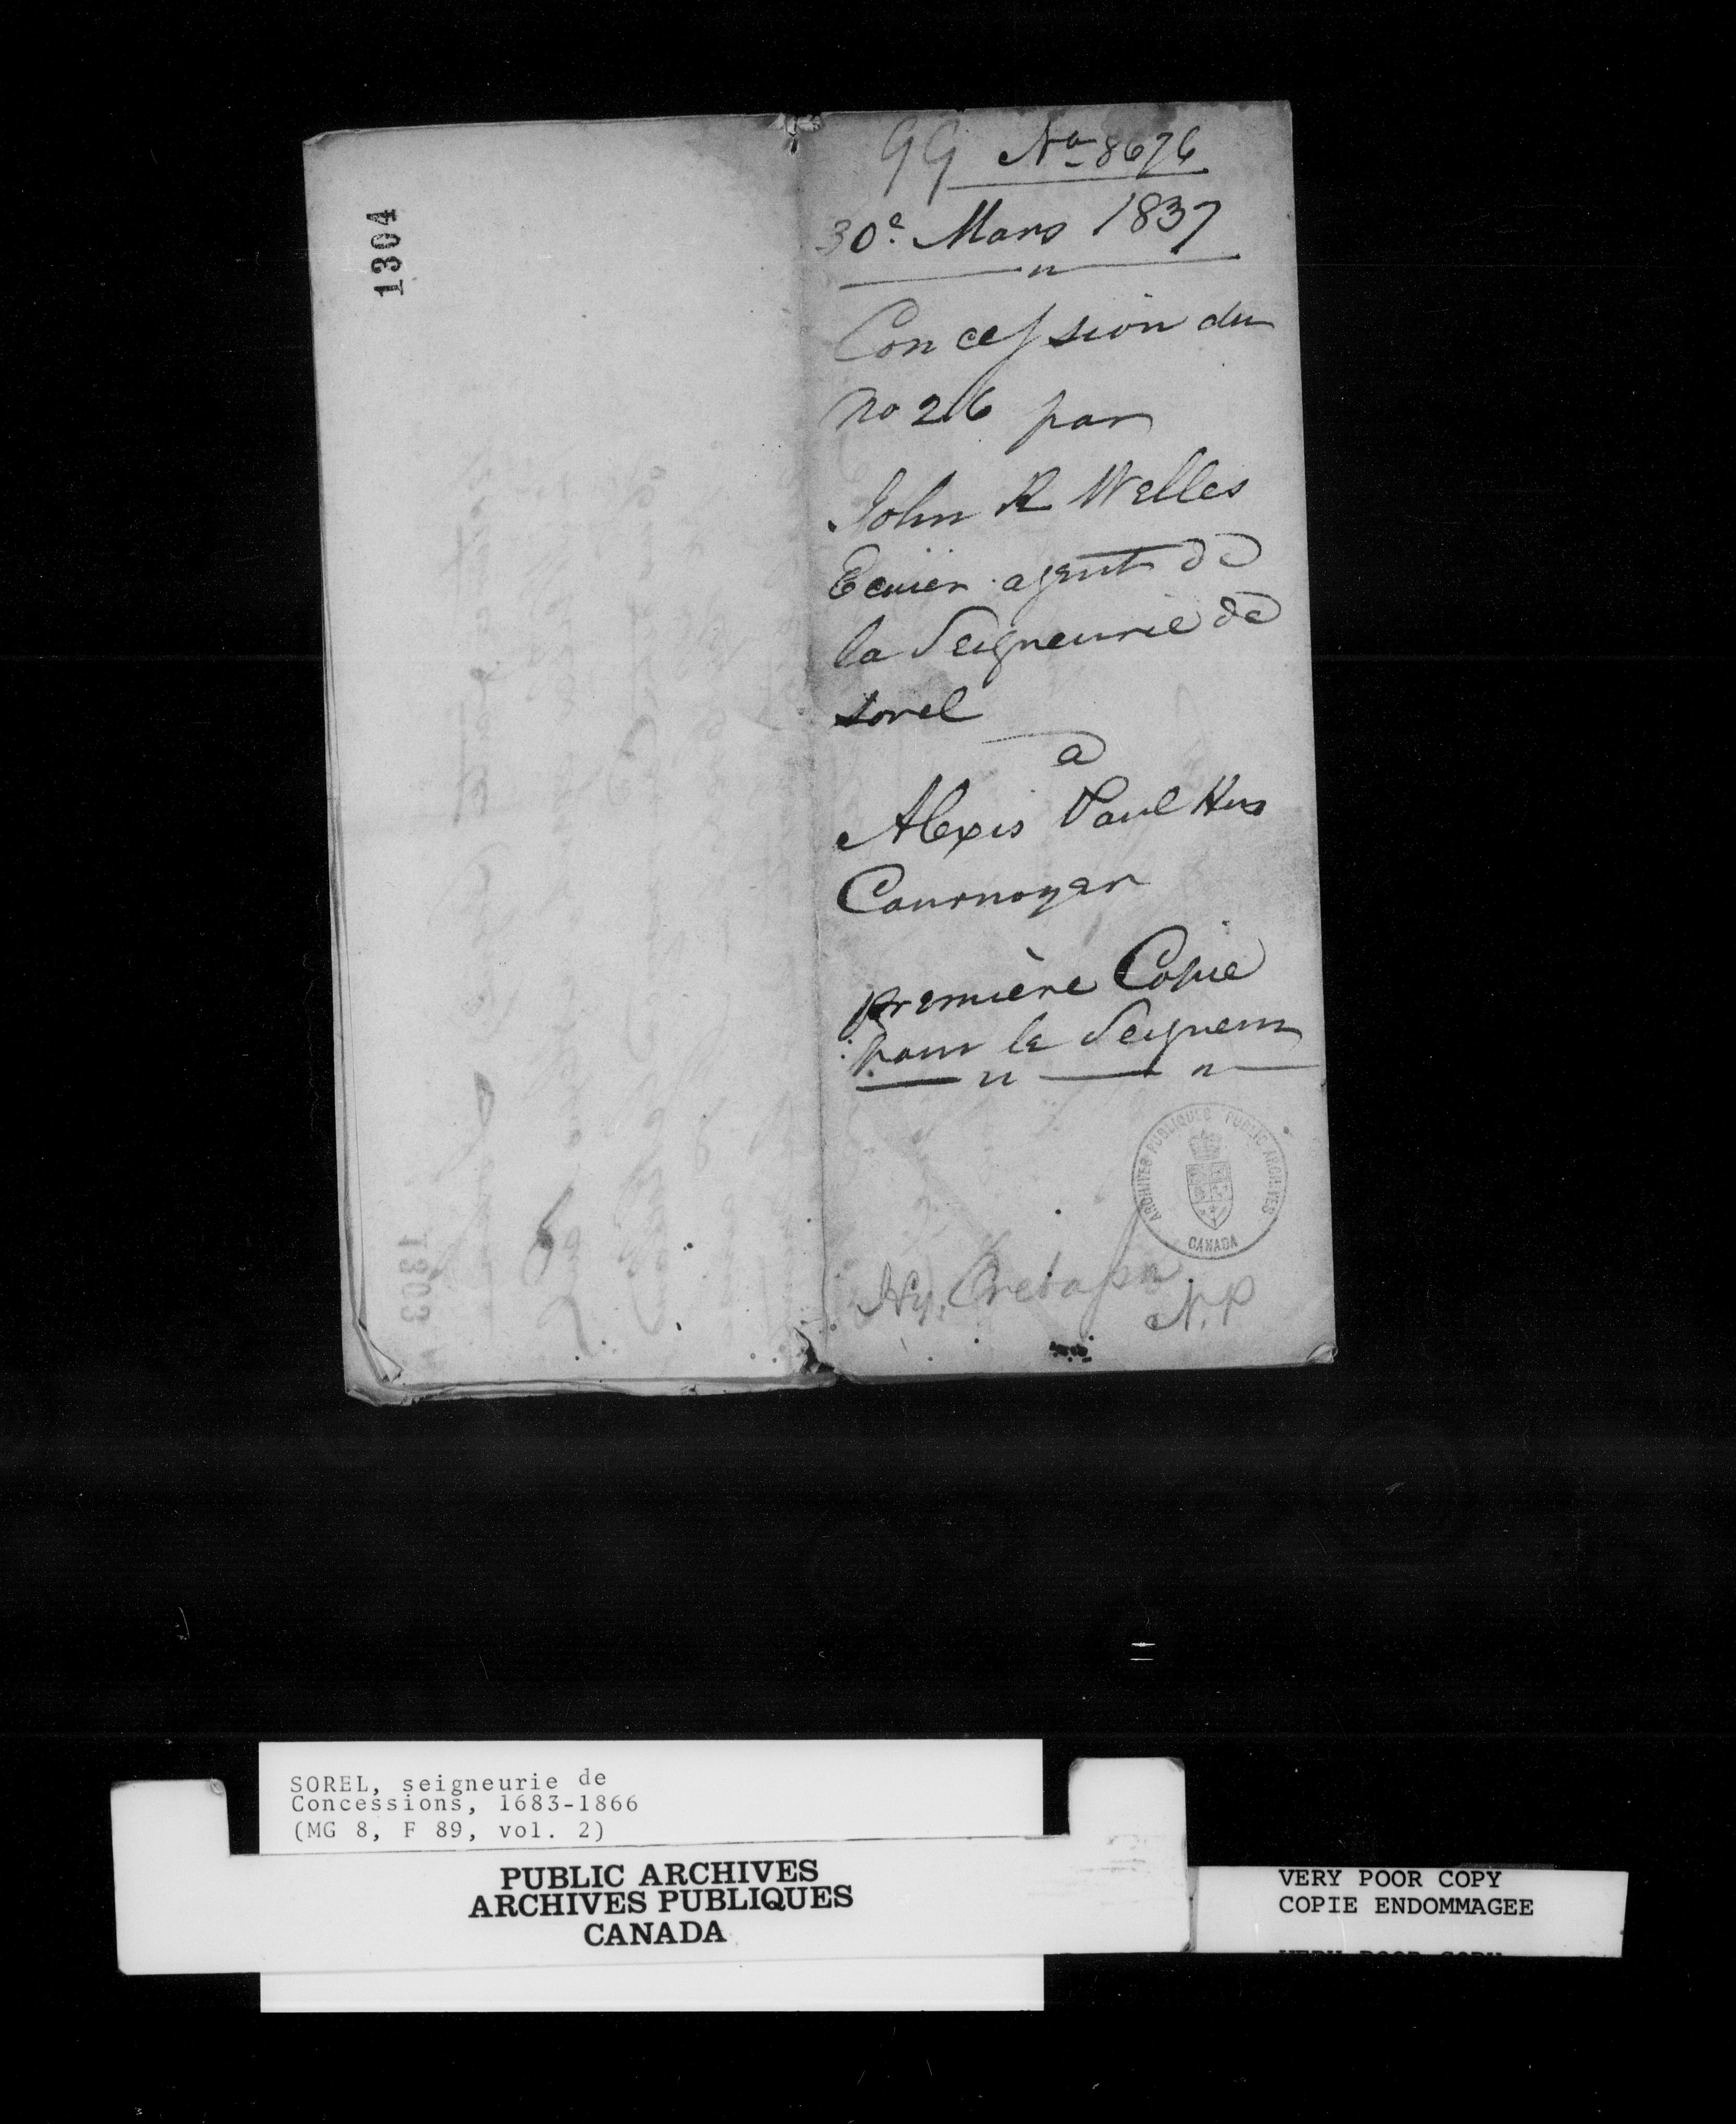 1304
GG No 8676
30e Mars 1837
Concession du
no 26 par
John R Welles
Ecuier agent de
la Seigneurie de
Sorel
a
Alexis Paul Hus
Cournoyer
première Copie
pour le Seigneur
ARCHIVES PUBLIQUES PUBLIC ARCHIVES
CANADA
Hy. Crebassa
N.P
1303
SOREL, seigneurie de
Concessions, 1683-1866
(MG 8, F 89, vol. 2)
PUBLIC ARCHIVES
ARCHIVES PUBLIQUES
CANADA
VERY POOR COPY
COPIE ENDOMMAGEE
VERY POOR COPY